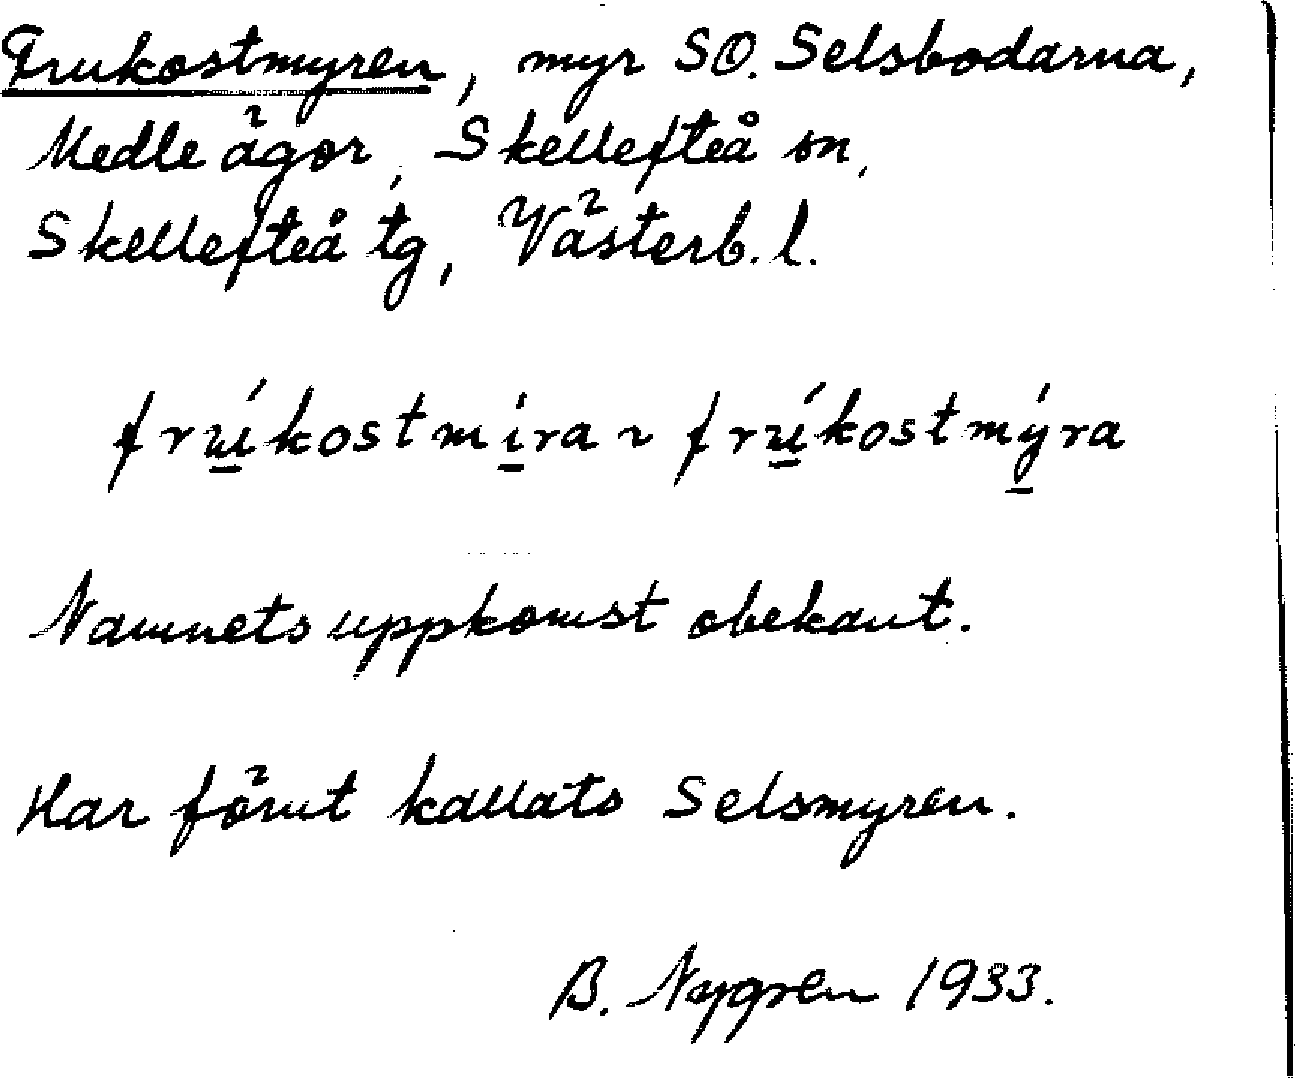 Frukostmyren, myr SO. Selsbodarna,
Medle ägor, Skellefteå sn,
Skellefteå tg, Västerb. l.
frúkostmíra ~ frúkostmýra
Namnets uppkomst obekant.
Har förut kallats Selsmyren.
B. Nygren 1933.